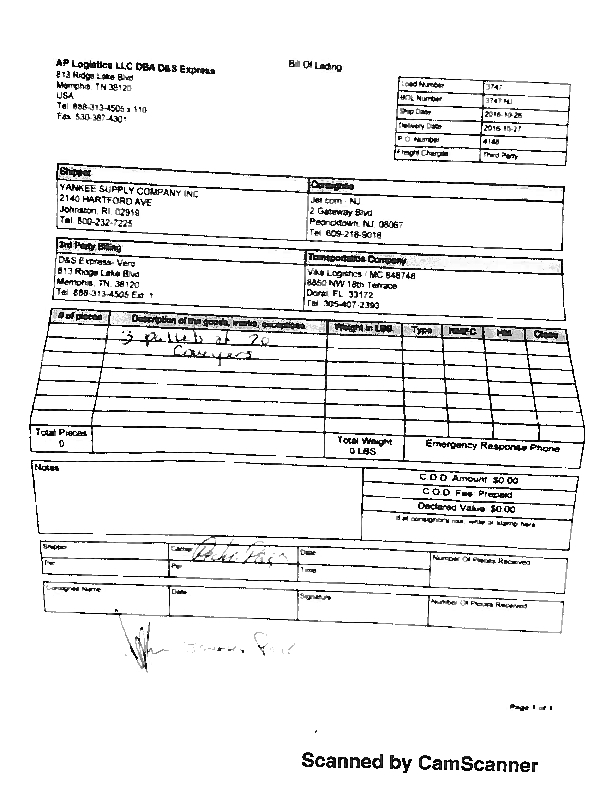 AP Logistics LLC DBA D&S Express
813 Ridge Lake Blvd
Memphis, TN 38120
USA
Tel 888-313-4505 x 110
Fax 530-387-4301
Bill Of Lading
Load Number 3747
BOL Number 3747 NJ
Ship Date 2016-10-26
Delivery Date 2016-10-27
P.O. Number 4148
Freight Charges Third Party
Shipper
YANKEE SUPPLY COMPANY INC
2140 HARTFORD AVE
Johnston, RI 02919
Tel 800-232-7225
Consignee
Jet.com - NJ
2 Gateway Blvd
Pedricktown, NJ 08067
Tel 609-218-9018
3rd Party Billing
D&S Express- Vero
813 Ridge Lake Blvd
Memphis, TN 38120
Tel 888-313-4505 Ext 1
Transportation Company
Vika Logistics / MC 848748
8850 NW 18th Terrace
Doral FL 33172
Tel 305-407-2393
# of pieces Description of the goods, marks, exceptions Weight in LBS Type NMFC HM Class
3 pallets at 20
Total Pieces
0
Total Weight
0 LBS
Emergency Response Phone
Notes
C.O.D. Amount $0.00
C.O.D. Fee Prepaid
Declared Value $0.00
Shipper Carrier Date Number Of Pieces Received
Per Per Time
Consignee Name Date Signature Number Of Pieces Received
Page 1 of 1
Scanned by CamScanner